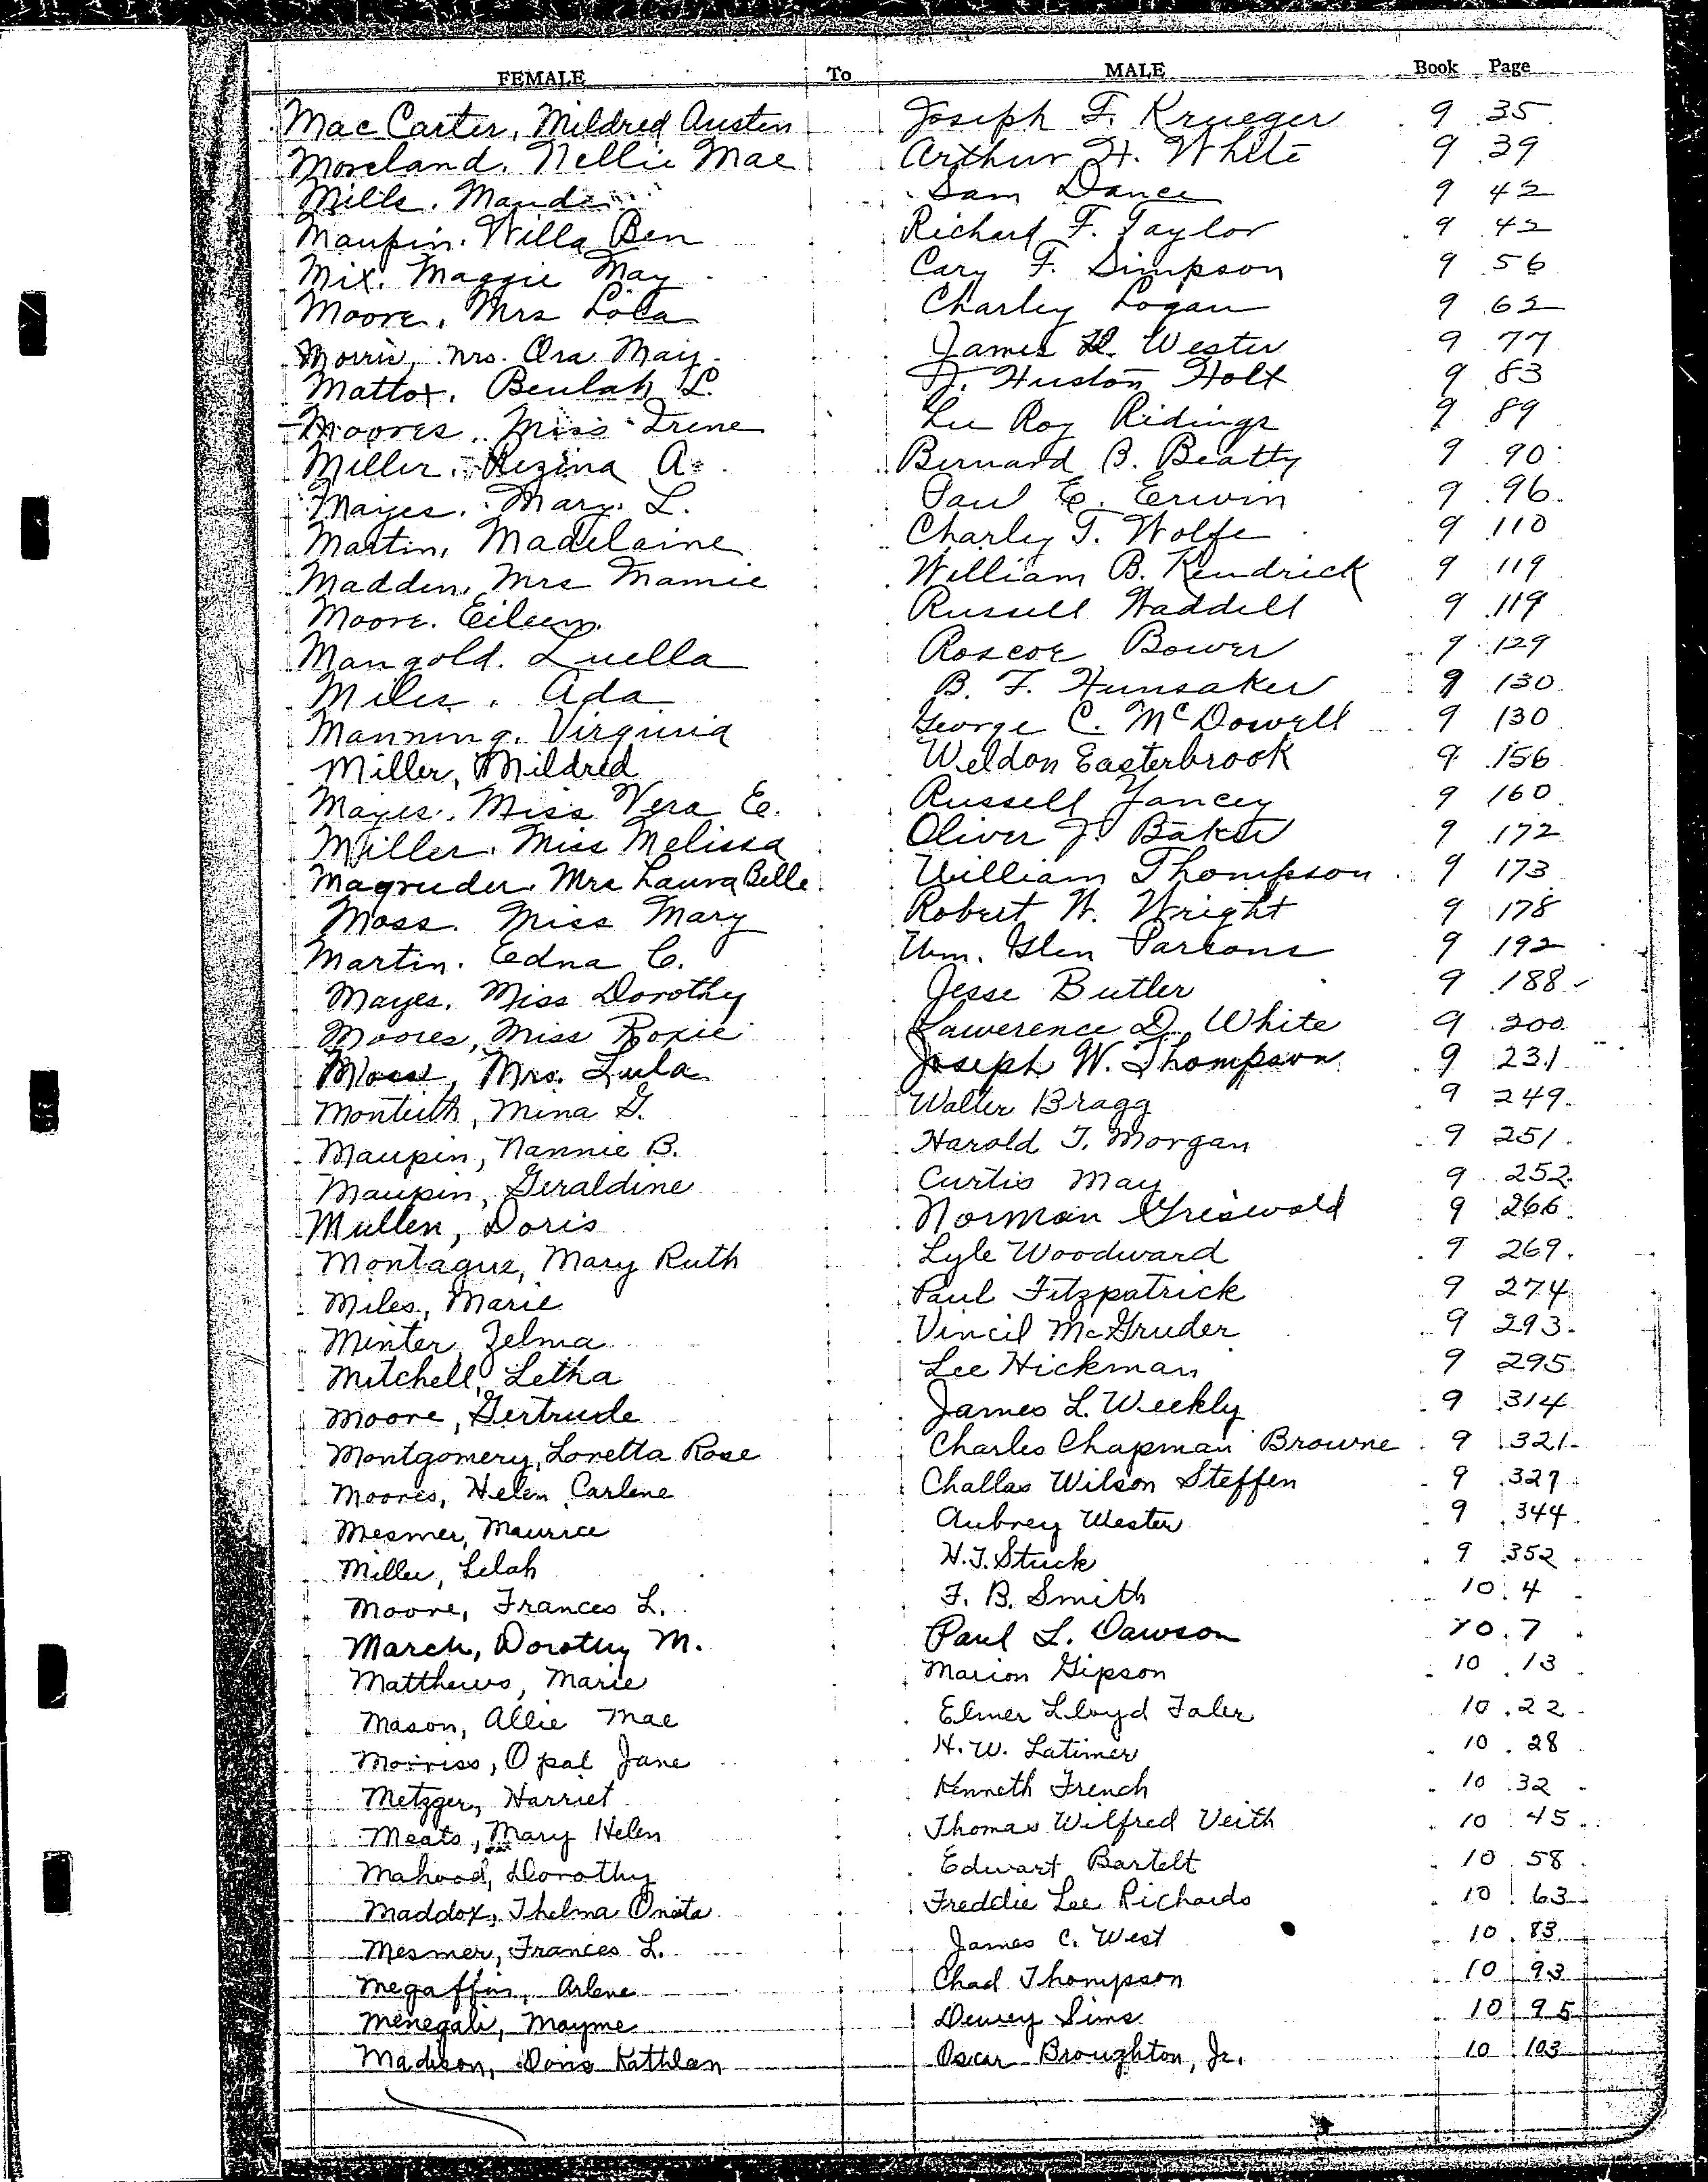 FEMALE To MALE Book Page
MacCarter, Mildred Austin Joseph F. Krueger 9 35
Moreland, Nellie Mae Arthur H. White 9 39
Mills, Maude Sam Dance 9 42
Maupin, Willa Ben Richard F. Taylor 9 42
Mix, Maggie May Cary F. Simpson 9 56
Moore, Mrs Lola Charley Logan 9 62
Morris, Mrs. Ora May James H. Wester 9 77
Mattox, Beulah L. Huston Holt 9 83
Moores, Miss Irene Lee Roy Ridings 9 89
Miller, Regina A. Bernard B. Beatty 9 90
Mayes, Mary L. Paul E. Erwin 9 96
Martin, Madelaine Charley T. Wolfe 9 110
Madden, Mrs Mamie William B. Kendrick 9 119
Moore, Eileen Russell Waddell 9 119
Mangold, Luella Roscoe Bower 9 129
Miles, Ada B. F. Hunsaker 9 130
Manning, Virginia George C. McDowell 9 130
Miller, Mildred Weldon Easterbrook 9 156
Mayes, Miss Vera E. Russell Yancey 9 160
Miller, Miss Melissa Oliver J. Baker 9 172
Magruder, Mrs Laura Belle William Thompson 9 173
Moss, Miss Mary Robert W. Wright 9 178
Martin, Edna C. Wm. Glen Parsons 9 192
Mayes, Miss Dorothy Jesse Butler 9 188
Moores, Miss Roxie Lawerence D. White 9 200
Moss, Mrs. Lula Joseph W. Thompson 9 231
Monteith, Mina G. Walter Bragg 9 249
Maupin, Nannie B. Harold T. Morgan 9 251
Maupin, Geraldine Curtis May 9 252
Mullen, Doris Norman Griswold 9 266
Montague, Mary Ruth Lyle Woodward 9 269
Miles, Marie Paul Fitzpatrick 9 274
Minter, Zelma Vincil McGruder 9 293
Mitchell, Letha Lee Hickman 9 295
Moore, Gertrude James L. Weekly 9 314
Montgomery, Loretta Rose Charles Chapman Browne 9 321
Moores, Helen Carlene Challas Wilson Steffen 9 327
Mesmer, Maurice Aubrey Wester 9 344
Miller, Lelah H.T. Stuck 9 352
Moore, Frances L. F. B. Smith 10 4
March, Dorothy M. Paul L. Dawson 10 7
Matthews, Marie Marion Gipson 10 13
Mason, Allie Mae Elmer Lloyd Faler 10 22
Morriss, Opal Jane H. W. Latimer 10 28
Metzger, Harriet Kenneth French 10 32
Meats, Mary Helen Thomas Wilfred Veith 10 45
Mahood, Dorothy Edwart Bartelt 10 58
Maddox, Thelma Onita Freddie Lee Richards 10 63
Mesmer, Frances L. James C. West 10 83
Megaffin, Arlene Chad Thompson 10 93
Menegali, Mayme Dewey Sims 10 95
Madison, Doris Kathleen Oscar Broughton, Jr. 10 103